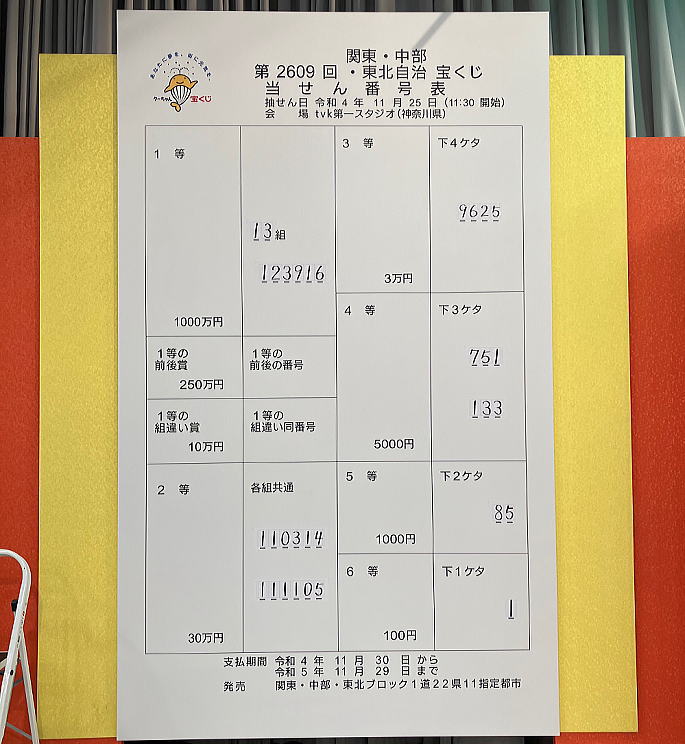 あなたに夢を、街に元気を。
クーちゃん 宝くじ
関東・中部
第 2609 回 ・東北自治 宝くじ
当せん番号表
抽せん日 令和 4 年 11 月 25 日 (11:30 開始)
会 場 tvk第一スタジオ(神奈川県)
1 等
13組
123916
1000万円
1等の
前後賞
250万円
1等の
前後の番号
1等の
組違い賞
10万円
1等の
組違い同番号
2 等
各組共通
110314
111105
30万円
3 等
下4ケタ
9625
3万円
4 等
下3ケタ
751
133
5000円
5 等
下2ケタ
85
1000円
6 等
下1ケタ
1
100円
支払期間 令和 4 年 11 月 30 日 から
令和 5 年 11 月 29 日 まで
発売 関東・中部・東北ブロック1道22県11指定都市